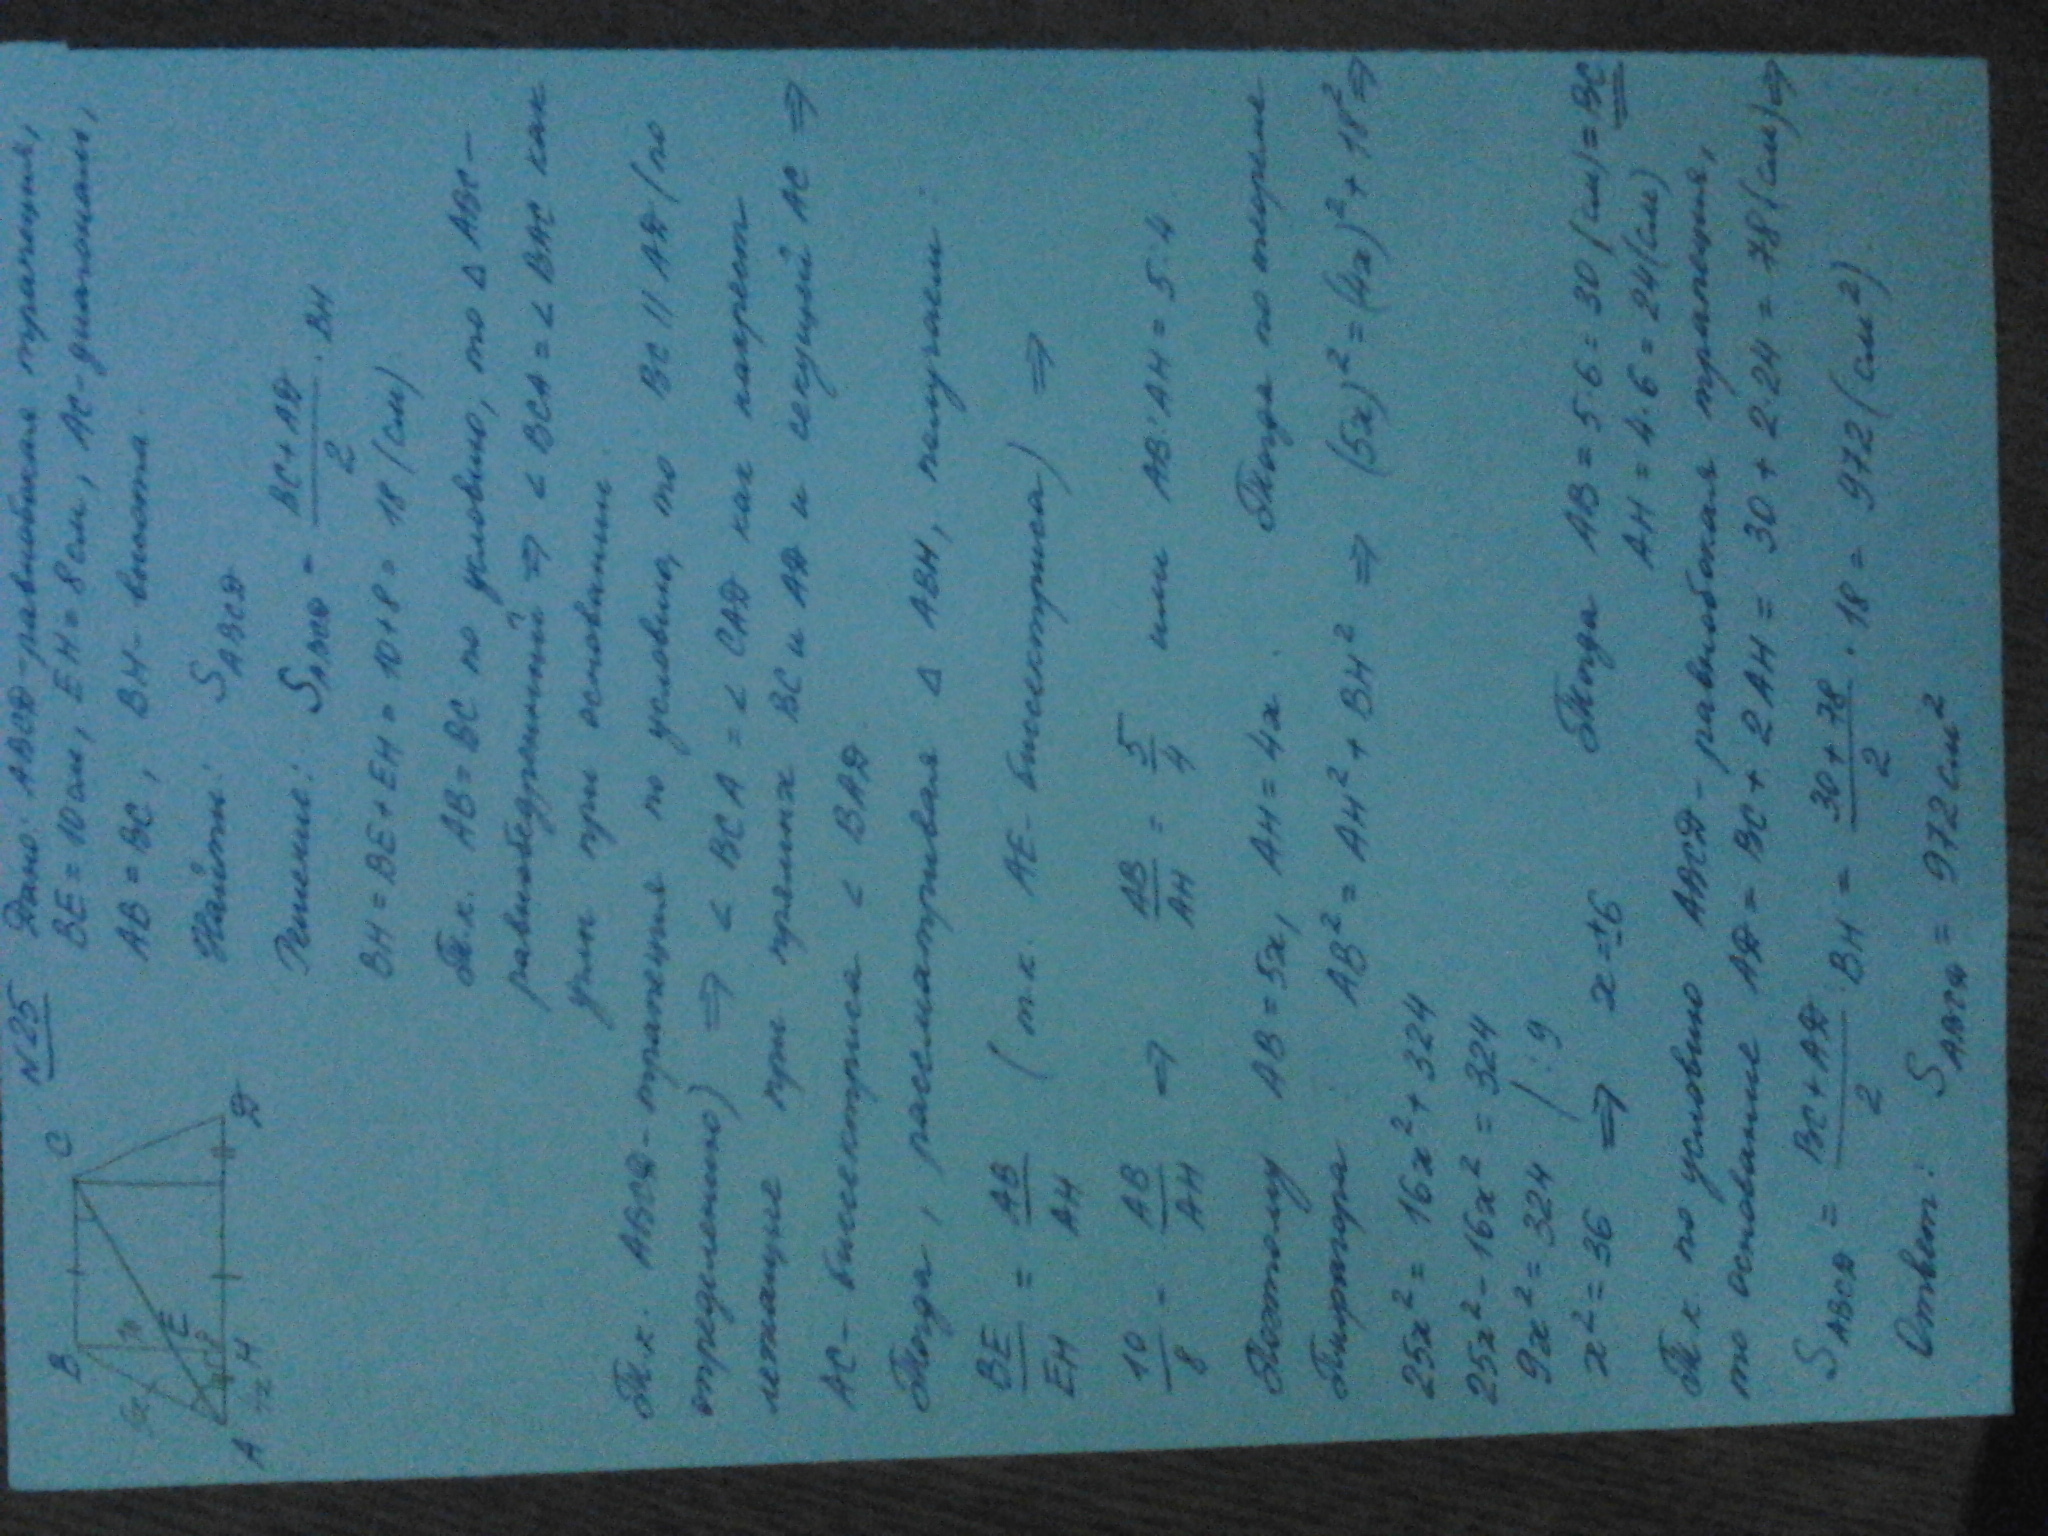 N25 Дано: ABCD - равнобокая трапеция,
BE = 10 см, EH = 8 см, AC - диагональ,
AB = BC, BH - высота.
Найти: S ABCD
Решение: S ABCD = (BC + AD)/2 · BH
BH = BE + EH = 10 + 8 = 18 (см)
Т.к. AB = BC по условию, то Δ ABC -
равнобедренный ⇒ ∠ BCA = ∠ BAC как
углы при основании.
Т.к. ABCD - трапеция по условию, то BC || AD (по
определению) ⇒ ∠ BCA = ∠ CAD как накрест
лежащие при прямых BC и AD и секущей AC ⇒
AC - биссектриса ∠ BAD.
Тогда, рассматривая Δ ABH, получаем:
BE/EH = AB/AH (т.к. AE - биссектриса) ⇒
10/8 = AB/AH ⇒ AB/AH = 5/4 или AB : AH = 5 : 4
Поэтому AB = 5x, AH = 4x. Тогда по теореме
Пифагора: AB² = AH² + BH² ⇒ (5x)² = (4x)² + 18² ⇒
25x² = 16x² + 324
25x² - 16x² = 324
9x² = 324 / : 9
x² = 36 ⇒ x = ±6 Тогда AB = 5·6 = 30 (см) = BC
AH = 4·6 = 24 (см)
Т.к. по условию ABCD - равнобокая трапеция,
то основание AD = BC + 2AH = 30 + 2·24 = 78 (см) ⇒
S ABCD = (BC + AD)/2 · BH = (30 + 78)/2 · 18 = 972 (см²)
Ответ: S ABCD = 972 см²
B
C
5x
10
E
8
A
4x
H
D